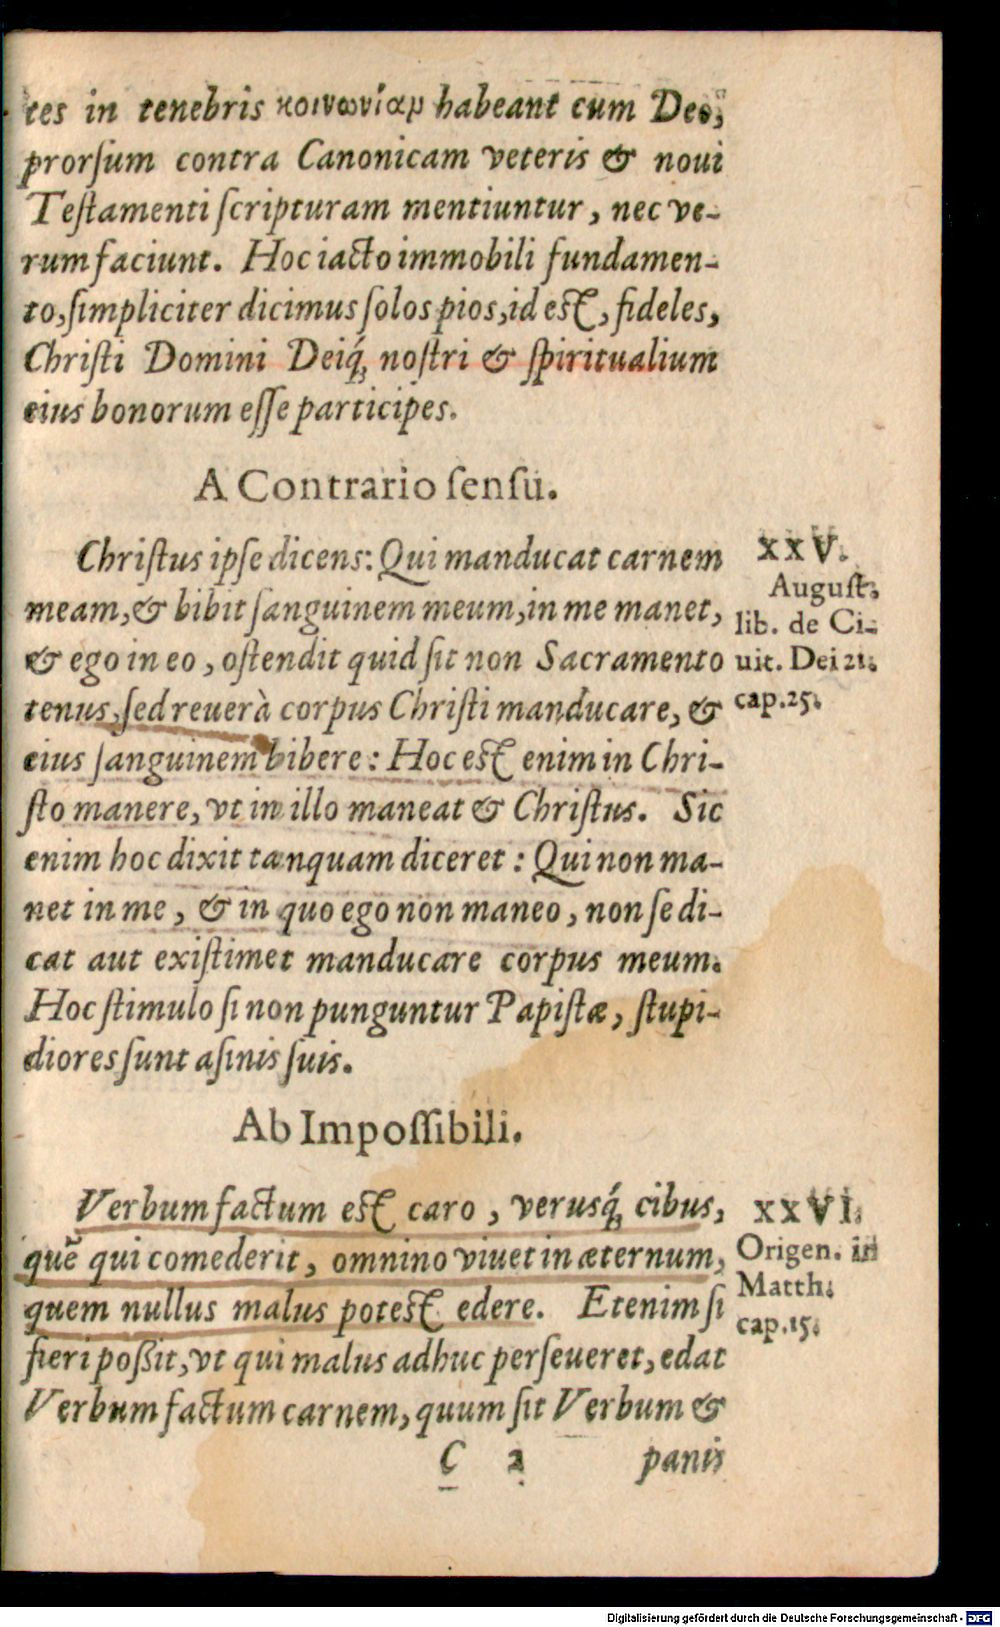 tes in tenebris κοινωνίαμ habeant cum Deo,
prorſum contra Canonicam veteris & noui
Teſtamenti ſcripturam mentiuntur, nec ve-
rum faciunt. Hoc iacto immobili fundamen-
to, ſimpliciter dicimus ſolos pios, id eſt, fideles,
Chriſti Domini Deiq́; noſtri & ſpiritualium
eius bonorum eſſe participes.
A Contrario ſenſu.
Chriſtus ipſe dicens: Qui manducat carnem
meam, & bibit ſanguinem meum, in me manet,
& ego in eo, oſtendit quid ſit non Sacramento
tenus, ſed reuerà corpus Chriſti manducare, &
eius ſanguinem bibere: Hoc eſt enim in Chri-
ſto manere, vt in illo maneat & Chriſtus. Sic
enim hoc dixit tanquam diceret: Qui non ma-
net in me, & in quo ego non maneo, non ſe di-
cat aut exiſtimet manducare corpus meum.
Hoc ſtimulo ſi non punguntur Papiſtæ, ſtupi-
diores ſunt aſinis ſuis.
XXV.
Auguſt.
lib. de Ci-
uit. Dei 21.
cap.25.
Ab Impoſſibili.
Verbum factum eſt caro, verusq́; cibus,
quē qui comederit, omnino viuet in æternum,
quem nullus malus poteſt edere. Etenim ſi
fieri poßit, vt qui malus adhuc perſeueret, edat
Verbum factum carnem, quum ſit Verbum &
XXVI.
Origen. in
Matth.
cap.15.
C 2 panis
Digitalisierung gefördert durch die Deutsche Forschungsgemeinschaft - DFG